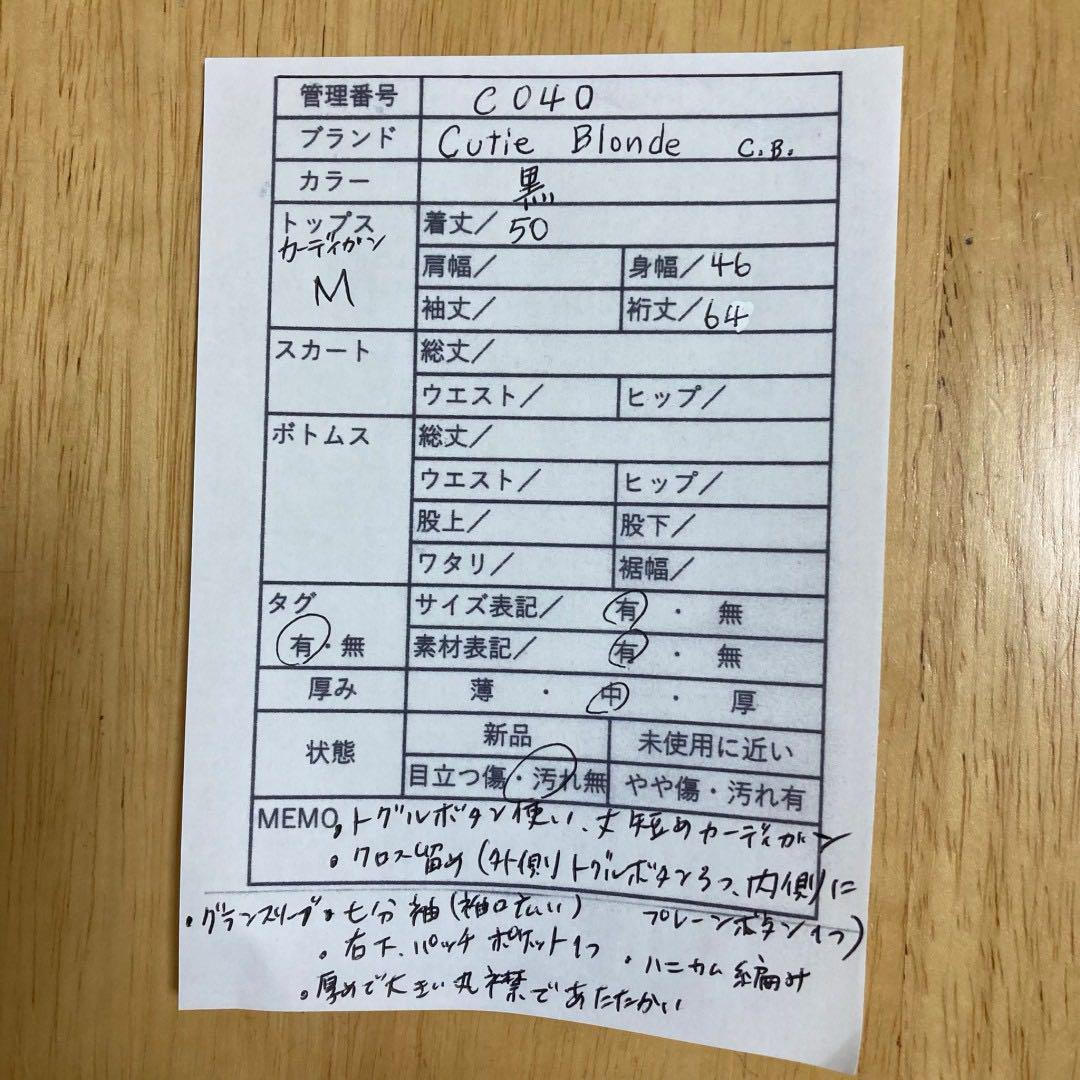 管理番号 C040
ブランド Cutie Blonde C.B.
カラー 黒
トップス 着丈/ 50
カーディガン
M
肩幅/ 身幅/ 46
袖丈/ 裄丈/ 64
スカート 総丈/
ウエスト/ ヒップ/
ボトムス 総丈/
ウエスト/ ヒップ/
股上/ 股下/
ワタリ/ 裾幅/
タグ サイズ表記/ 有・無
有・無 素材表記/ 有・無
厚み 薄・中・厚
状態 新品 未使用に近い
目立つ傷・汚れ無 やや傷・汚れ有
MEMO 。トグルボタン使い、丈短めカーディガン
・クロス留め(外側トグルボタン3つ、内側に
プレーンボタン1つ)
・グランスリーブ・七分袖(袖口広い)
・右下、パッチポケット1つ
・ハニカム編み
。厚めで大きい丸襟であたたかい